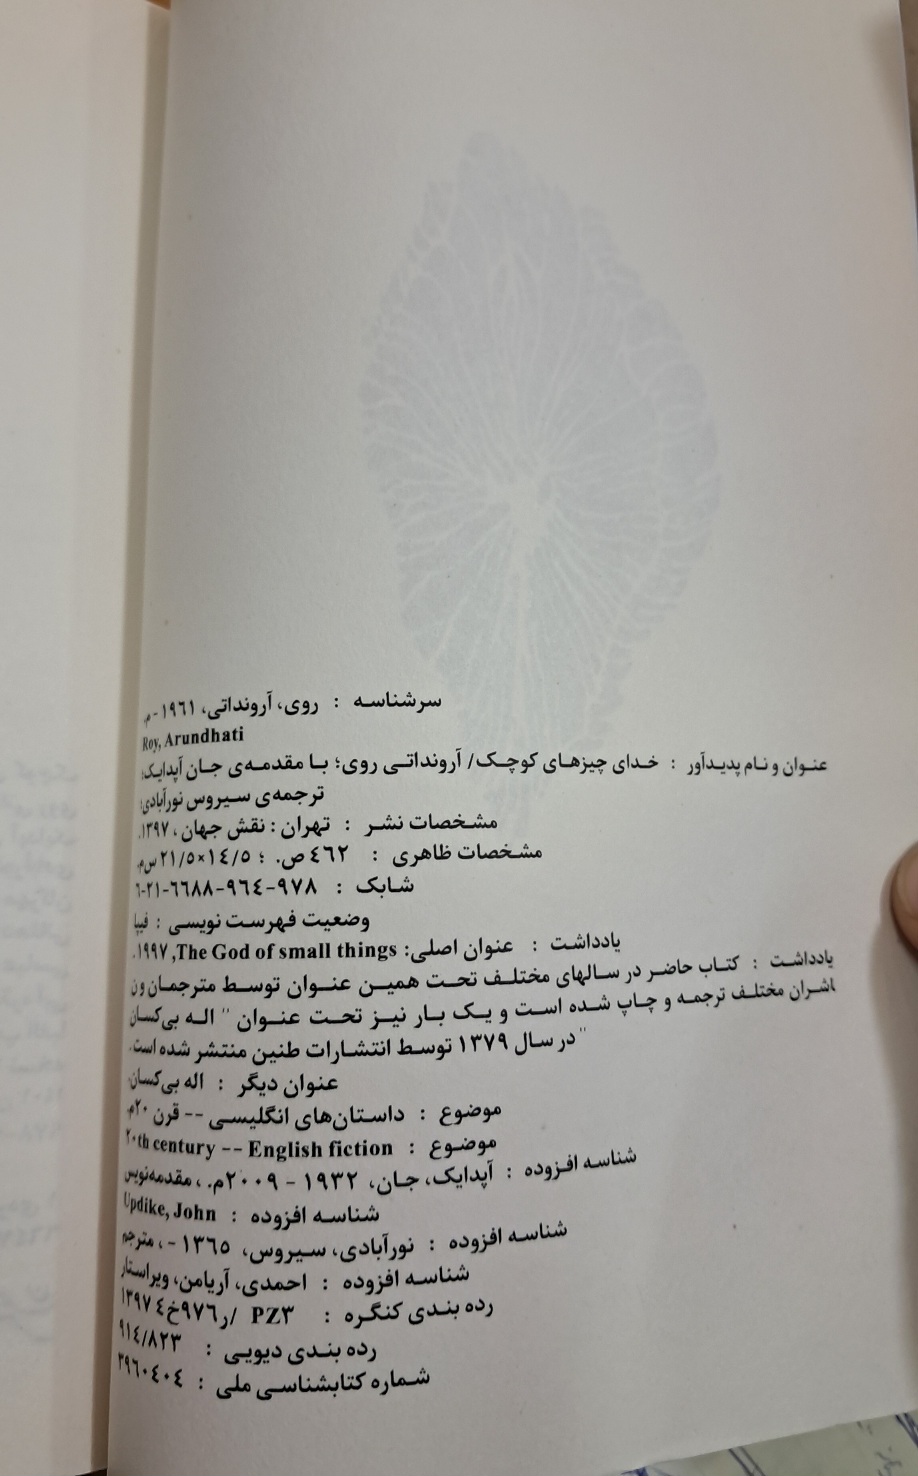 سرشناسه : روی، آرونداتی، ۱۹۶۱ - م.
Roy, Arundhati
عنوان و نام پدیدآور : خدای چیزهای کوچک/ آرونداتی روی؛ با مقدمه‌ی جان آپدایک؛
ترجمه‌ی سیروس نورآبادی؛
مشخصات نشر : تهران : نقش جهان، ۱۳۹۷.
مشخصات ظاهری : ۴۶۲ ص. ؛ ۱۴/۵×۲۱/۵ س‌م.
شابک : ۹۷۸-۹۶۴-۶۶۸۸-۲۱-۶
وضعیت فهرست نویسی : فیپا
یادداشت : عنوان اصلی: The God of small things, ۱۹۹۷.
یادداشت : کتاب حاضر در سالهای مختلف تحت همین عنوان توسط مترجمان ون
اشران مختلف ترجمه و چاپ شده است و یک بار نیز تحت عنوان " اله بی‌کسان
" در سال ۱۳۷۹ توسط انتشارات طنین منتشر شده است.
عنوان دیگر : اله بی‌کسان.
موضوع : داستان‌های انگلیسی -- قرن ۲۰م.
موضوع : ۲۰th century -- English fiction
شناسه افزوده : آپدایک، جان، ۱۹۳۲ - ۲۰۰۹م. ، مقدمه‌نویس
شناسه افزوده : Updike, John
شناسه افزوده : نورآبادی، سیروس، ۱۳۶۵ -، مترجم
شناسه افزوده : احمدی، آریامن، ویراستار
رده بندی کنگره : PZ۳ /ر۹۷۶خ۴ ۱۳۹۷
رده بندی دیویی : ۹۱۴/۸۲۳
شماره کتابشناسی ملی : ۳۹۶۰۴۰۴